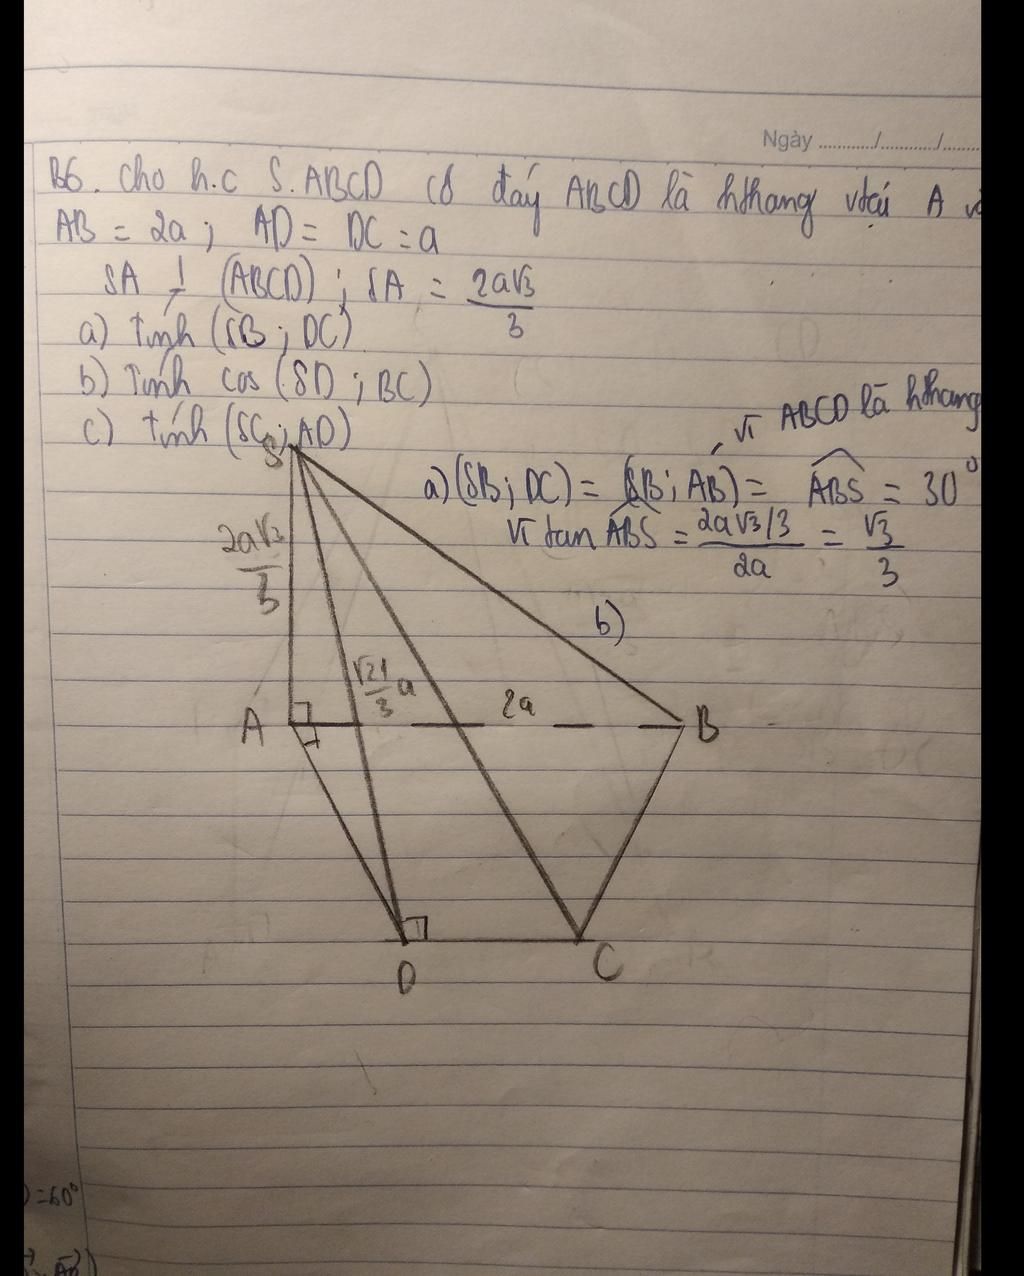 Ngày ........../.........../........
B6. Cho h.c S.ABCD có đáy ABCD là hthang vtại A
AB = 2a; AD = DC = a
SA ⊥ (ABCD); SA = 2a√3/3
a) tính (SB; DC)
b) Tính cos (SD; BC)
c) tính (SC; AD)
vì ABCD là hthang
a) (SB; DC) = (SB; AB) = ABS = 30°
vì tan ABS = 2a√3/3 / 2a = √3/3
b)
S
2a√3/3
√21/3 a
2a
A
B
D
C
) = 60°